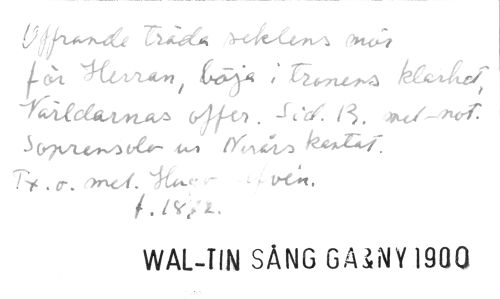 Offrande träda seklens mör
för Herran, böja i tronens klarhet,
Världarnas offer. Sid. 13. met-not.
Sopransolo ur Nyårskantat.
Tx. o. mel. Hugo Alfvén.
f. 1872.
WAL-TIN SÅNG GA&NY 1900